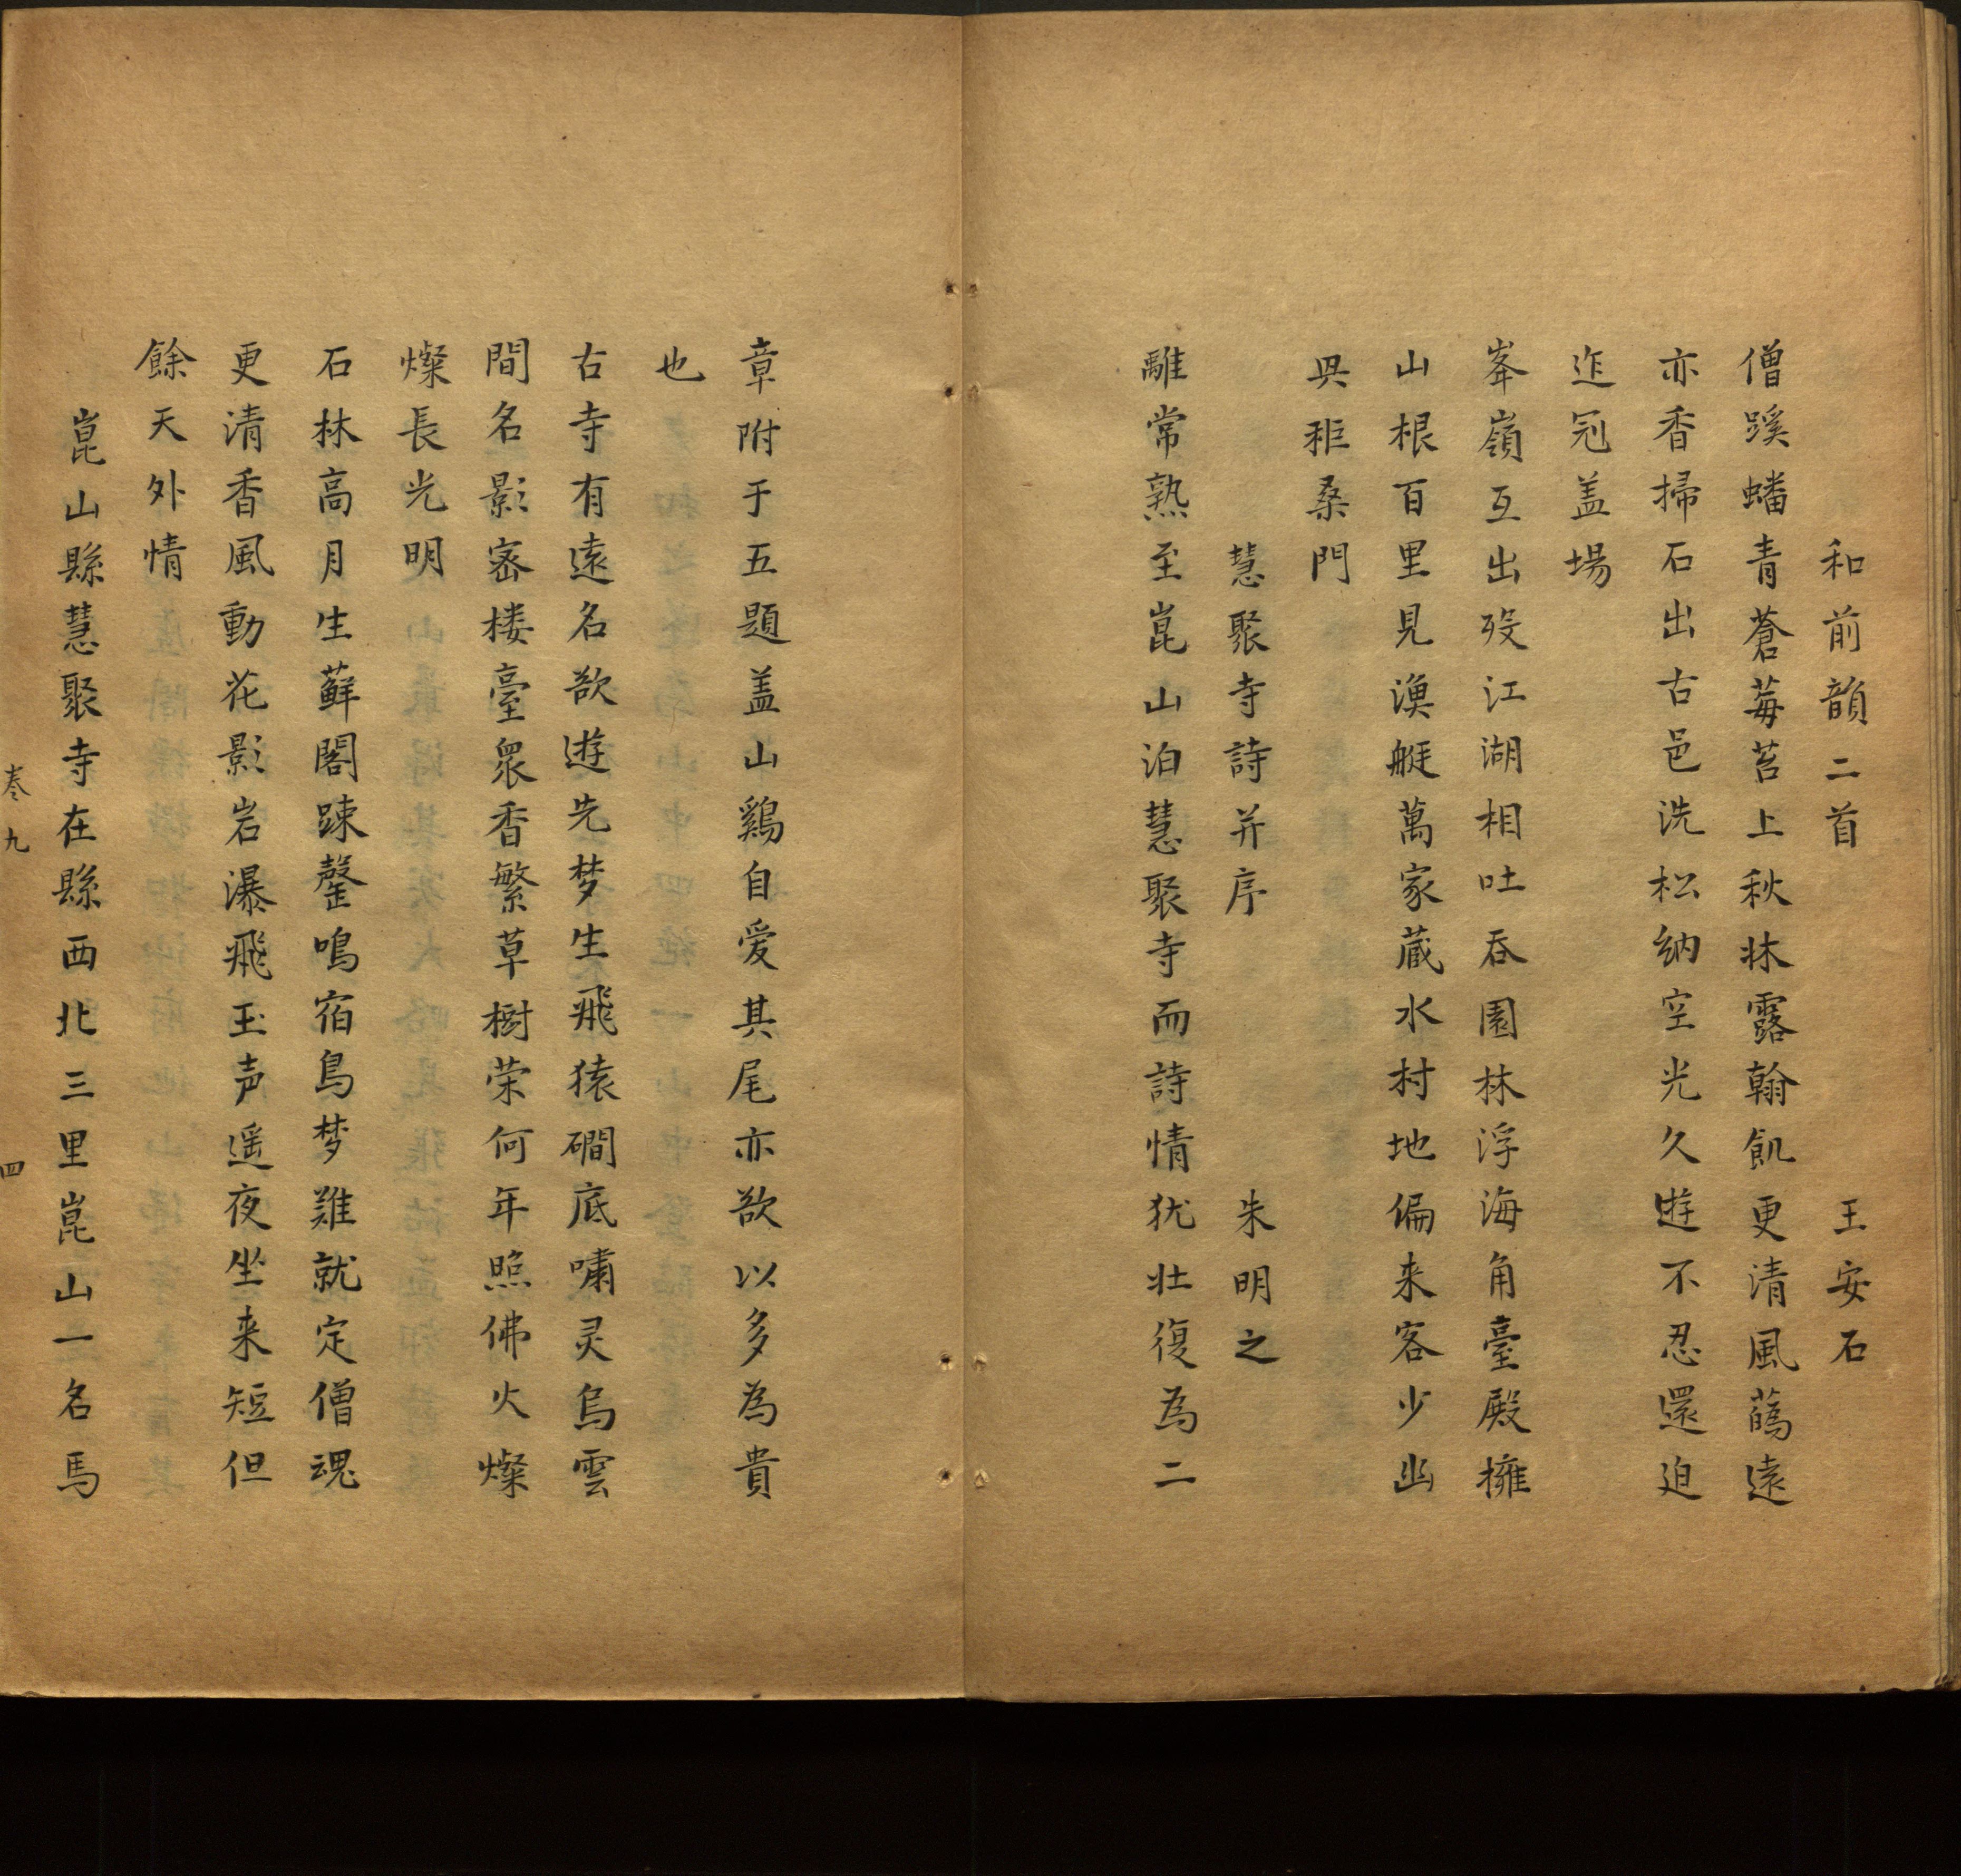 和前韻二首 王安石
僧蹊蟠青蒼莓苔上秋牀露翰飢更清風蘤遠
亦香掃石出古邑洗松納空光久遊不忍還迫
迮冠盖場
峯嶺互出殁江湖相吐吞園林浮海角臺殿擁
山根百里見漁艇萬家蔵水村地偏来客少幽
興秖桑門
慧聚寺詩并序 朱明之
離常熟至崑山泊慧聚寺而詩情犹壮復為二
章附于五題盖山鷄自爱其尾亦欲以多為貴
也
古寺有遠名欲遊先梦生飛猿磵底嘯灵烏雲
間名影宻楼臺衆香繁草樹荣何年照佛火燦
燦長光明
石林高月生蘚閣踈罄鳴宿鳥梦難就定僧魂
更清香風動花影岩瀑飛玉声遥夜坐来短但
餘天外情
崑山縣慧聚寺在縣西北三里崑山一名馬
卷九 四